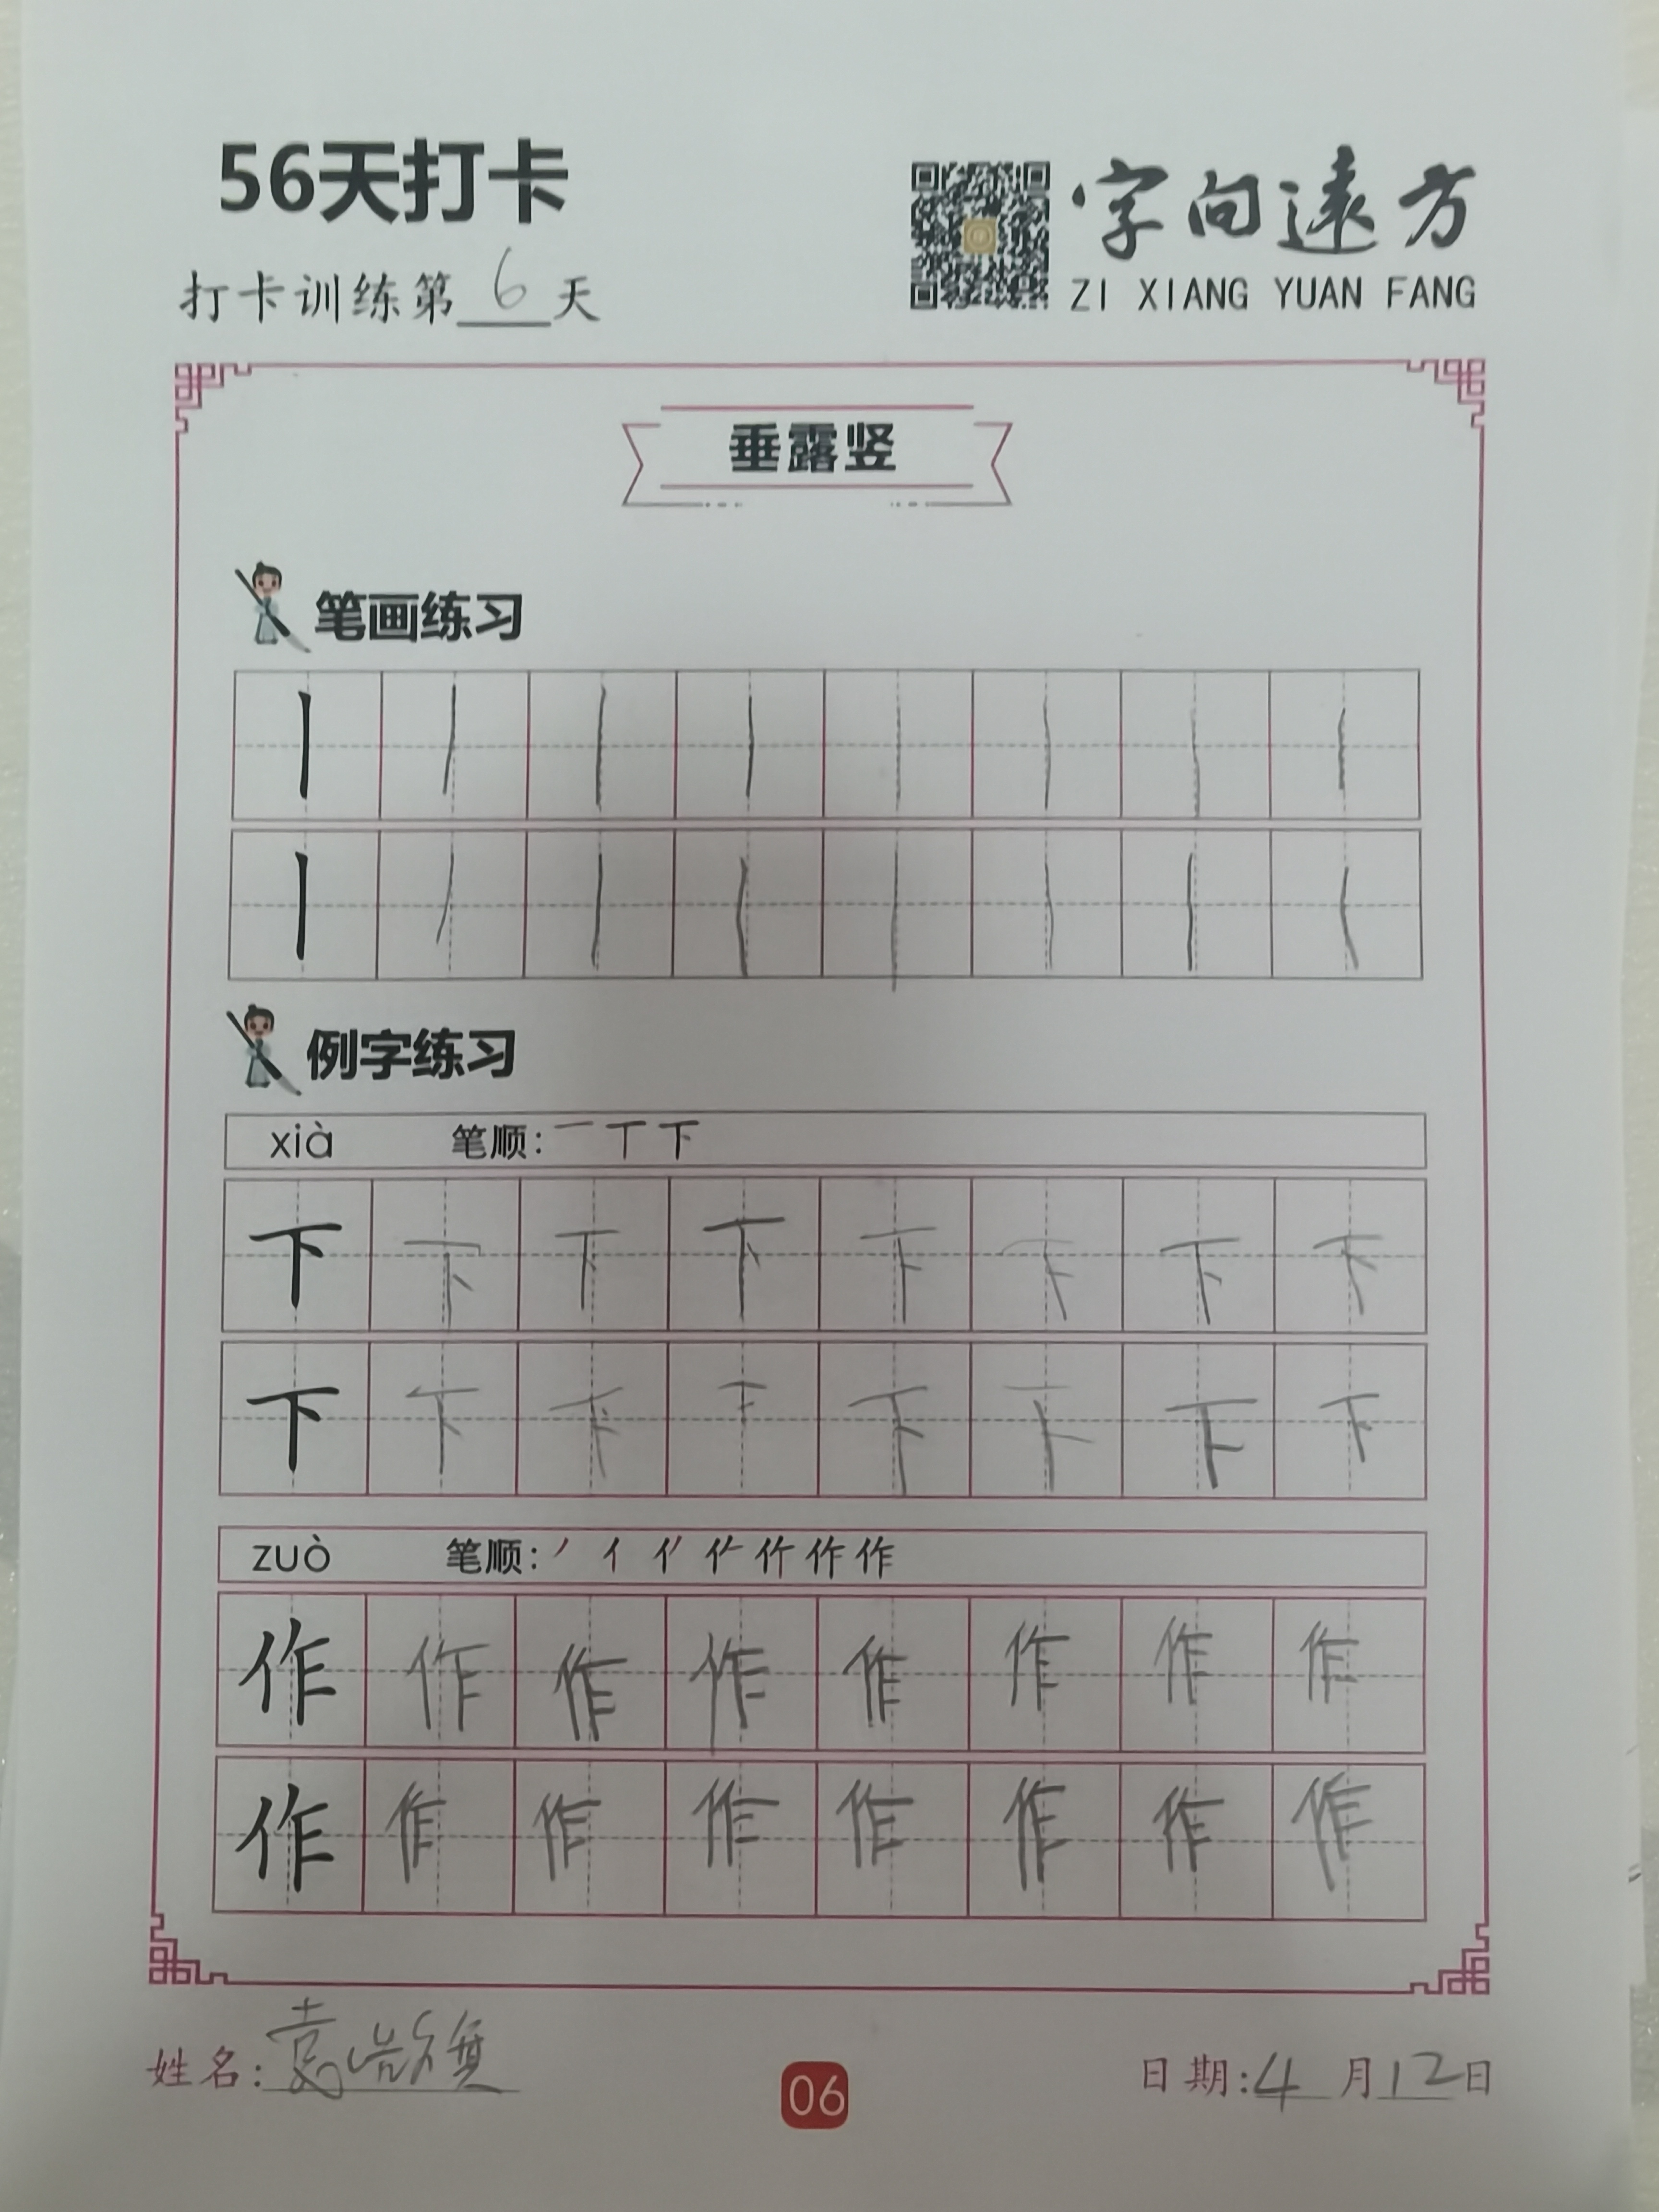 56天打卡
字向遠方
打卡训练第6天
ZI XIANG YUAN FANG
垂露竖
笔画练习
丨 丨 丨 丨 丨 丨 丨 丨
丨 丨 丨 丨 丨 丨 丨 丨
例字练习
xià 笔顺: 一 丅 下
下 下 下 下 下 下 下 下
下 下 下 下 下 下 下 下
zuò 笔顺: 丿 亻 作
作 作 作 作 作 作 作 作
作 作 作 作 作 作 作 作
姓名: 袁
日期: 4月12日
06